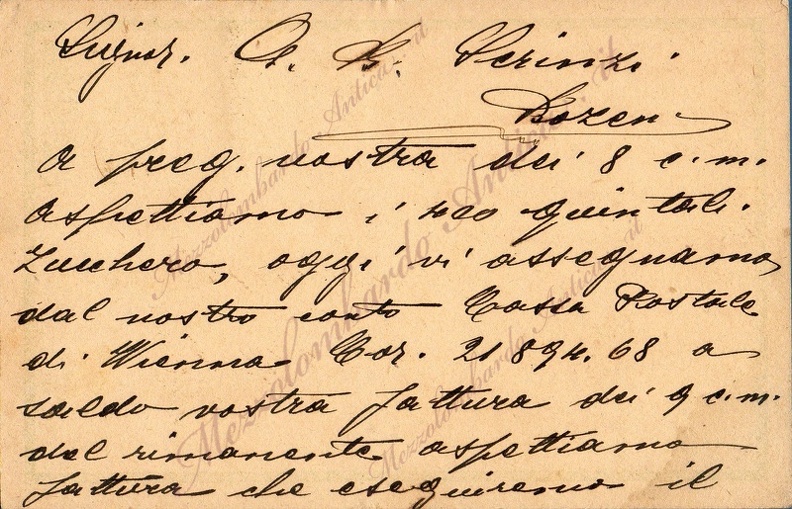 Signor. A. B. Scrinzi.
Bozen
A preg. vostra dei 8 c.m.
aspettiamo i 400 quintali.
Zucchero, oggi vi assegnamo
dal nostro conto Cassa Postale
di Wienna Cor. 21894.68 a
saldo vostra fattura dei 9 c.m.
del rimanente aspettiamo
fattura che eseguiremo il
Mezzolombardo Antica . it
Mezzolombardo Antica . it
Mezzolombardo Antica . it